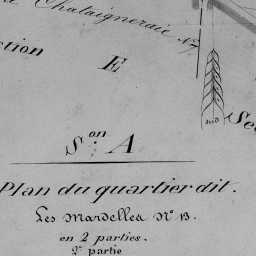 Chataigneraie N° 7
ction
E
Sud
Sec
S.on A
Plan du quartier dit.
Les Mardelles N° 13.
en 2 parties.
2e partie